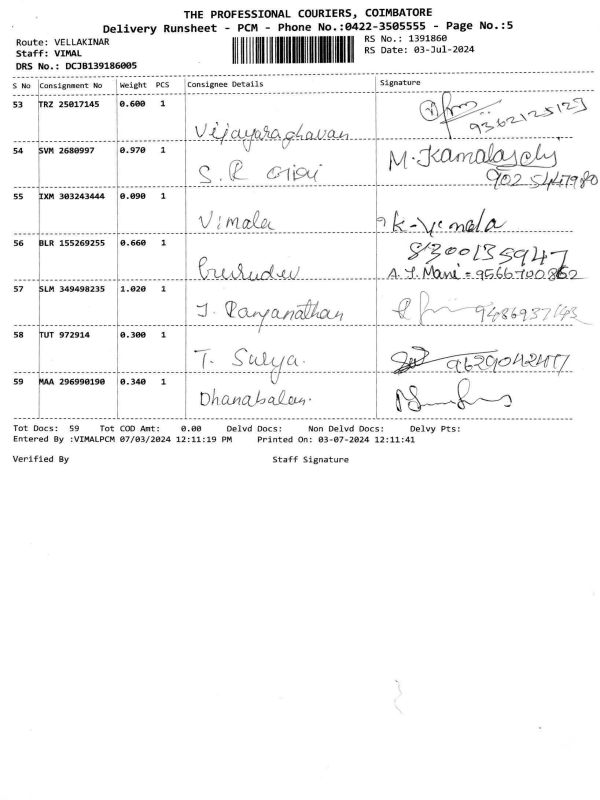 THE PROFESSIONAL COURIERS, COIMBATORE
Delivery Runsheet - PCM - Phone No.:0422-3505555 - Page No.:5
Route: VELLAKINAR RS No.: 1391860
Staff: VIMAL RS Date: 03-Jul-2024
DRS No.: DCJB139186005
S No Consignment No Weight PCS Consignee Details Signature
53 TRZ 25017145 0.600 1
Vijayaraghavan 9362125123
54 SVM 2680997 0.970 1 M. Kamalaselvi
S. R Giri
55 IXM 303243444 0.090 1
Vimala K-Vimala
56 BLR 155269255 0.660 1 8300135947
Gurudev A. J. Mani = 9566700862
57 SLM 349498235 1.020 1
J. Panjanathan
58 TUT 972914 0.300 1
T. Surya.
59 MAA 296990190 0.340 1
Dhanabalan.
Tot Docs: 59 Tot COD Amt: 0.00 Delvd Docs: Non Delvd Docs: Delvy Pts:
Entered By :VIMALPCM 07/03/2024 12:11:19 PM Printed On: 03-07-2024 12:11:41
Verified By Staff Signature